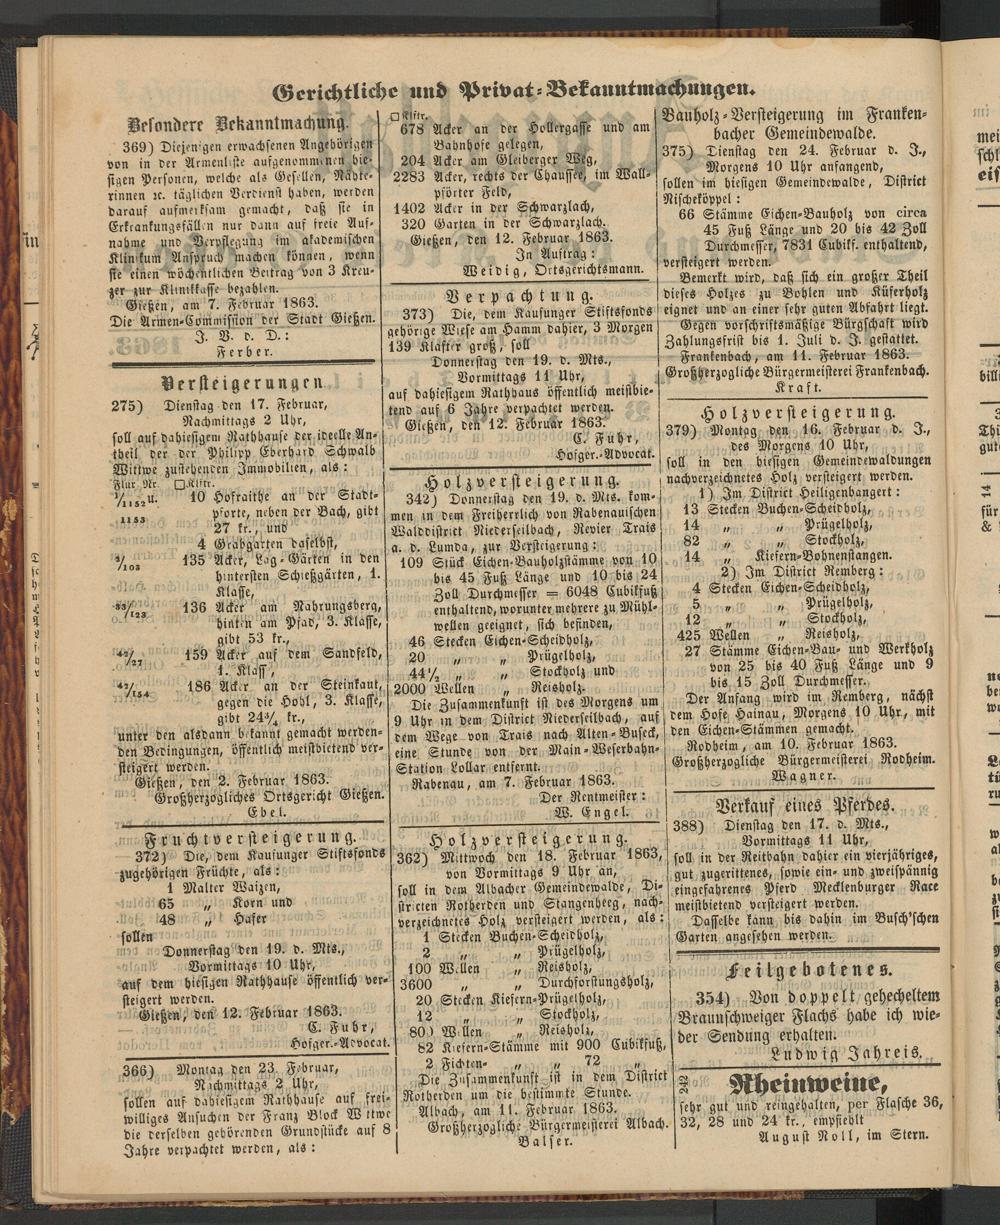 Gerichtliche und Privat-Bekanntmachungen.
Besondere Bekanntmachung.
369) Diejenigen erwachsenen Angehörigen
von in der Armenliste aufgenommenen hie-
sigen Personen, welche als Gesellen, Nähte-
rinnen ꝛc. täglichen Verdienst haben, werden
darauf aufmerksam gemacht, daß sie in
Erkrankungsfällen nur dann auf freie Auf-
nahme und Verpflegung im akademischen
Klinikum Anspruch machen können, wenn
sie einen wöchentlichen Beitrag von 3 Kreu-
zer zur Klinikkasse bezahlen.
Gießen, am 7. Februar 1863.
Die Armen-Commission der Stadt Gießen.
J. V. d. D.:
Ferber.
Versteigerungen
275) Dienstag den 17. Februar,
Nachmittags 2 Uhr,
soll auf dahiesigem Rathhause der ideelle An-
theil der der Philipp Eberhard Schwalb
Wittwe zustehenden Immobilien, als:
Flur Nr. □Klftr.
1/1152 u. 10 Hofraithe an der Stadt-
1153 pforte, neben der Bach, gibt
27 kr., und
4 Grabgarten daselbst,
3/103 135 Acker, Lag-Gärten in den
hintersten Schießgärten, 1.
Klasse,
33/123 136 Acker am Nahrungsberg,
hinten am Pfad, 3. Klasse,
gibt 53 kr.,
42/27 159 Acker auf dem Sandfeld,
1. Klass,
42/154 186 Acker an der Steinkaut,
gegen die Hohl, 3. Klasse,
gibt 24¼ kr.,
unter den alsdann bekannt gemacht werden-
den Bedingungen, öffentlich meistbietend ver-
steigert werden.
Gießen, den 2. Februar 1863.
Großherzogliches Ortsgericht Gießen.
Ebel.
Fruchtversteigerung.
372) Die, dem Kaufunger Stiftsfonds
zugehörigen Früchte, als:
1 Malter Waizen,
65 „ Korn und
48 „ Hafer
sollen
Donnerstag den 19. d. Mts.,
Vormittags 10 Uhr,
auf dem hiesigen Rathhause öffentlich ver-
steigert werden.
Gießen, den 12. Februar 1863.
C. Fuhr,
Hofger.-Advocat.
366) Montag den 23. Februar,
Nachmittags 2 Uhr,
sollen auf dahiesigem Rathhause auf frei-
williges Ansuchen der Franz Block Wittwe
die derselben gehörenden Grundstücke auf 8
Jahre verpachtet werden, als:
□Klftr.
678 Acker an der Hollergasse und am
Bahnhofe gelegen,
204 Acker am Gleiberger Weg,
2283 Acker, rechts der Chaussee, im Wall-
pförter Feld,
1402 Acker in der Schwarzlach,
320 Garten in der Schwarzlach.
Gießen, den 12. Februar 1863.
In Auftrag:
Weidig, Ortsgerichtsmann.
Verpachtung.
373) Die, dem Kaufunger Stiftsfonds
gehörige Wiese am Hamm dahier, 3 Morgen
139 Klafter groß, soll
Donnerstag den 19. d. Mts.,
Vormittags 11 Uhr,
auf dahiesigem Rathhaus öffentlich meistbie-
tend auf 6 Jahre verpachtet werden.
Gießen, den 12. Februar 1863.
C. Fuhr,
Hofger.-Advocat.
Holzversteigerung.
342) Donnerstag den 19. d. Mts. kom-
men in dem Freiherrlich von Rabenauischen
Walddistrict Niederseilbach, Revier Trais
a. d. Lumda, zur Versteigerung:
109 Stück Eichen-Bauholzstämme von 10
bis 45 Fuß Länge und 10 bis 24
Zoll Durchmesser = 6048 Cubikfuß
enthaltend, worunter mehrere zu Mühl-
wellen geeignet, sich befinden,
46 Stecken Eichen-Scheidholz,
20 „ „ Prügelholz,
44½ „ „ Stockholz und
2000 Wellen „ Reisholz.
Die Zusammenkunft ist des Morgens um
9 Uhr in dem District Niederseilbach, auf
dem Wege von Trais nach Alten-Buseck,
eine Stunde von der Main-Weserbahn-
Station Lollar entfernt.
Rabenau, am 7. Februar 1863.
Der Rentmeister:
W. Engel.
Holzversteigerung.
362) Mittwoch den 18. Februar 1863,
von Vormittags 9 Uhr an,
soll in dem Albacher Gemeindewalde, Di-
stricten Rotherden und Stangenheeg, nach-
verzeichnetes Holz versteigert werden, als:
1 Stecken Buchen-Scheidholz,
2 „ „ Prügelholz,
100 Wellen „ Reisholz,
3600 „ „ Durchforstungsholz,
20 Stecken Kiefern-Prügelholz,
12 „ „ Stockholz,
800 Wellen „ Reisholz,
82 Kiefern-Stämme mit 900 Cubikfuß,
2 Fichten- „ „ 72 „
Die Zusammenkunft ist in dem District
Rotherden um die bestimmte Stunde.
Albach, am 11. Februar 1863.
Großherzogliche Bürgermeisterei Albach.
Balser.
Bauholz-Versteigerung im Franken-
bacher Gemeindewalde.
375) Dienstag den 24. Februar d. J.,
Morgens 10 Uhr anfangend,
sollen im hiesigen Gemeindewalde, District
Nischeköppel:
66 Stämme Eichen-Bauholz von circa
45 Fuß Länge und 20 bis 42 Zoll
Durchmesser, 7831 Cubikf. enthaltend,
versteigert werden.
Bemerkt wird, daß sich ein großer Theil
dieses Holzes zu Bohlen und Küferholz
eignet und an einer sehr guten Abfahrt liegt.
Gegen vorschriftsmäßige Bürgschaft wird
Zahlungsfrist bis 1. Juli d. J. gestattet.
Frankenbach, am 11. Februar 1863.
Großherzogliche Bürgermeisterei Frankenbach.
Kraft.
Holzversteigerung.
379) Montag den 16. Februar d. J.,
des Morgens 10 Uhr,
soll in den hiesigen Gemeindewaldungen
nachverzeichnetes Holz versteigert werden.
1) Im District Heiligenhangert:
13 Stecken Buchen-Scheidholz,
14 „ „ Prügelholz,
82 „ „ Stockholz,
14 „ Kiefern-Bohnenstangen.
2) Im District Remberg:
4 Stecken Eichen-Scheidholz,
5 „ „ Prügelholz,
12 „ „ Stockholz,
425 Wellen „ Reisholz,
27 Stämme Eichen-Bau- und Werkholz
von 25 bis 40 Fuß Länge und 9
bis 15 Zoll Durchmesser.
Der Anfang wird im Remberg, nächst
dem Hofe Hainau, Morgens 10 Uhr, mit
den Eichen-Stämmen gemacht.
Rodheim, am 10. Februar 1863.
Großherzogliche Bürgermeisterei Rodheim.
Wagner.
Verkauf eines Pferdes.
388) Dienstag den 17. d. Mts.,
Vormittags 11 Uhr,
soll in der Reitbahn dahier ein vierjähriges,
gut zugerittenes, sowie ein- und zweispännig
eingefahrenes Pferd Mecklenburger Race
meistbietend versteigert werden.
Dasselbe kann bis dahin im Busch'schen
Garten angesehen werden.
Feilgebotenes.
354) Von doppelt gehecheltem
Braunschweiger Flachs habe ich wie-
der Sendung erhalten.
Ludwig Jahreis.
242
Rheinweine,
sehr gut und reingehalten, per Flasche 36,
32, 28 und 24 kr., empfiehlt
August Noll, im Stern.